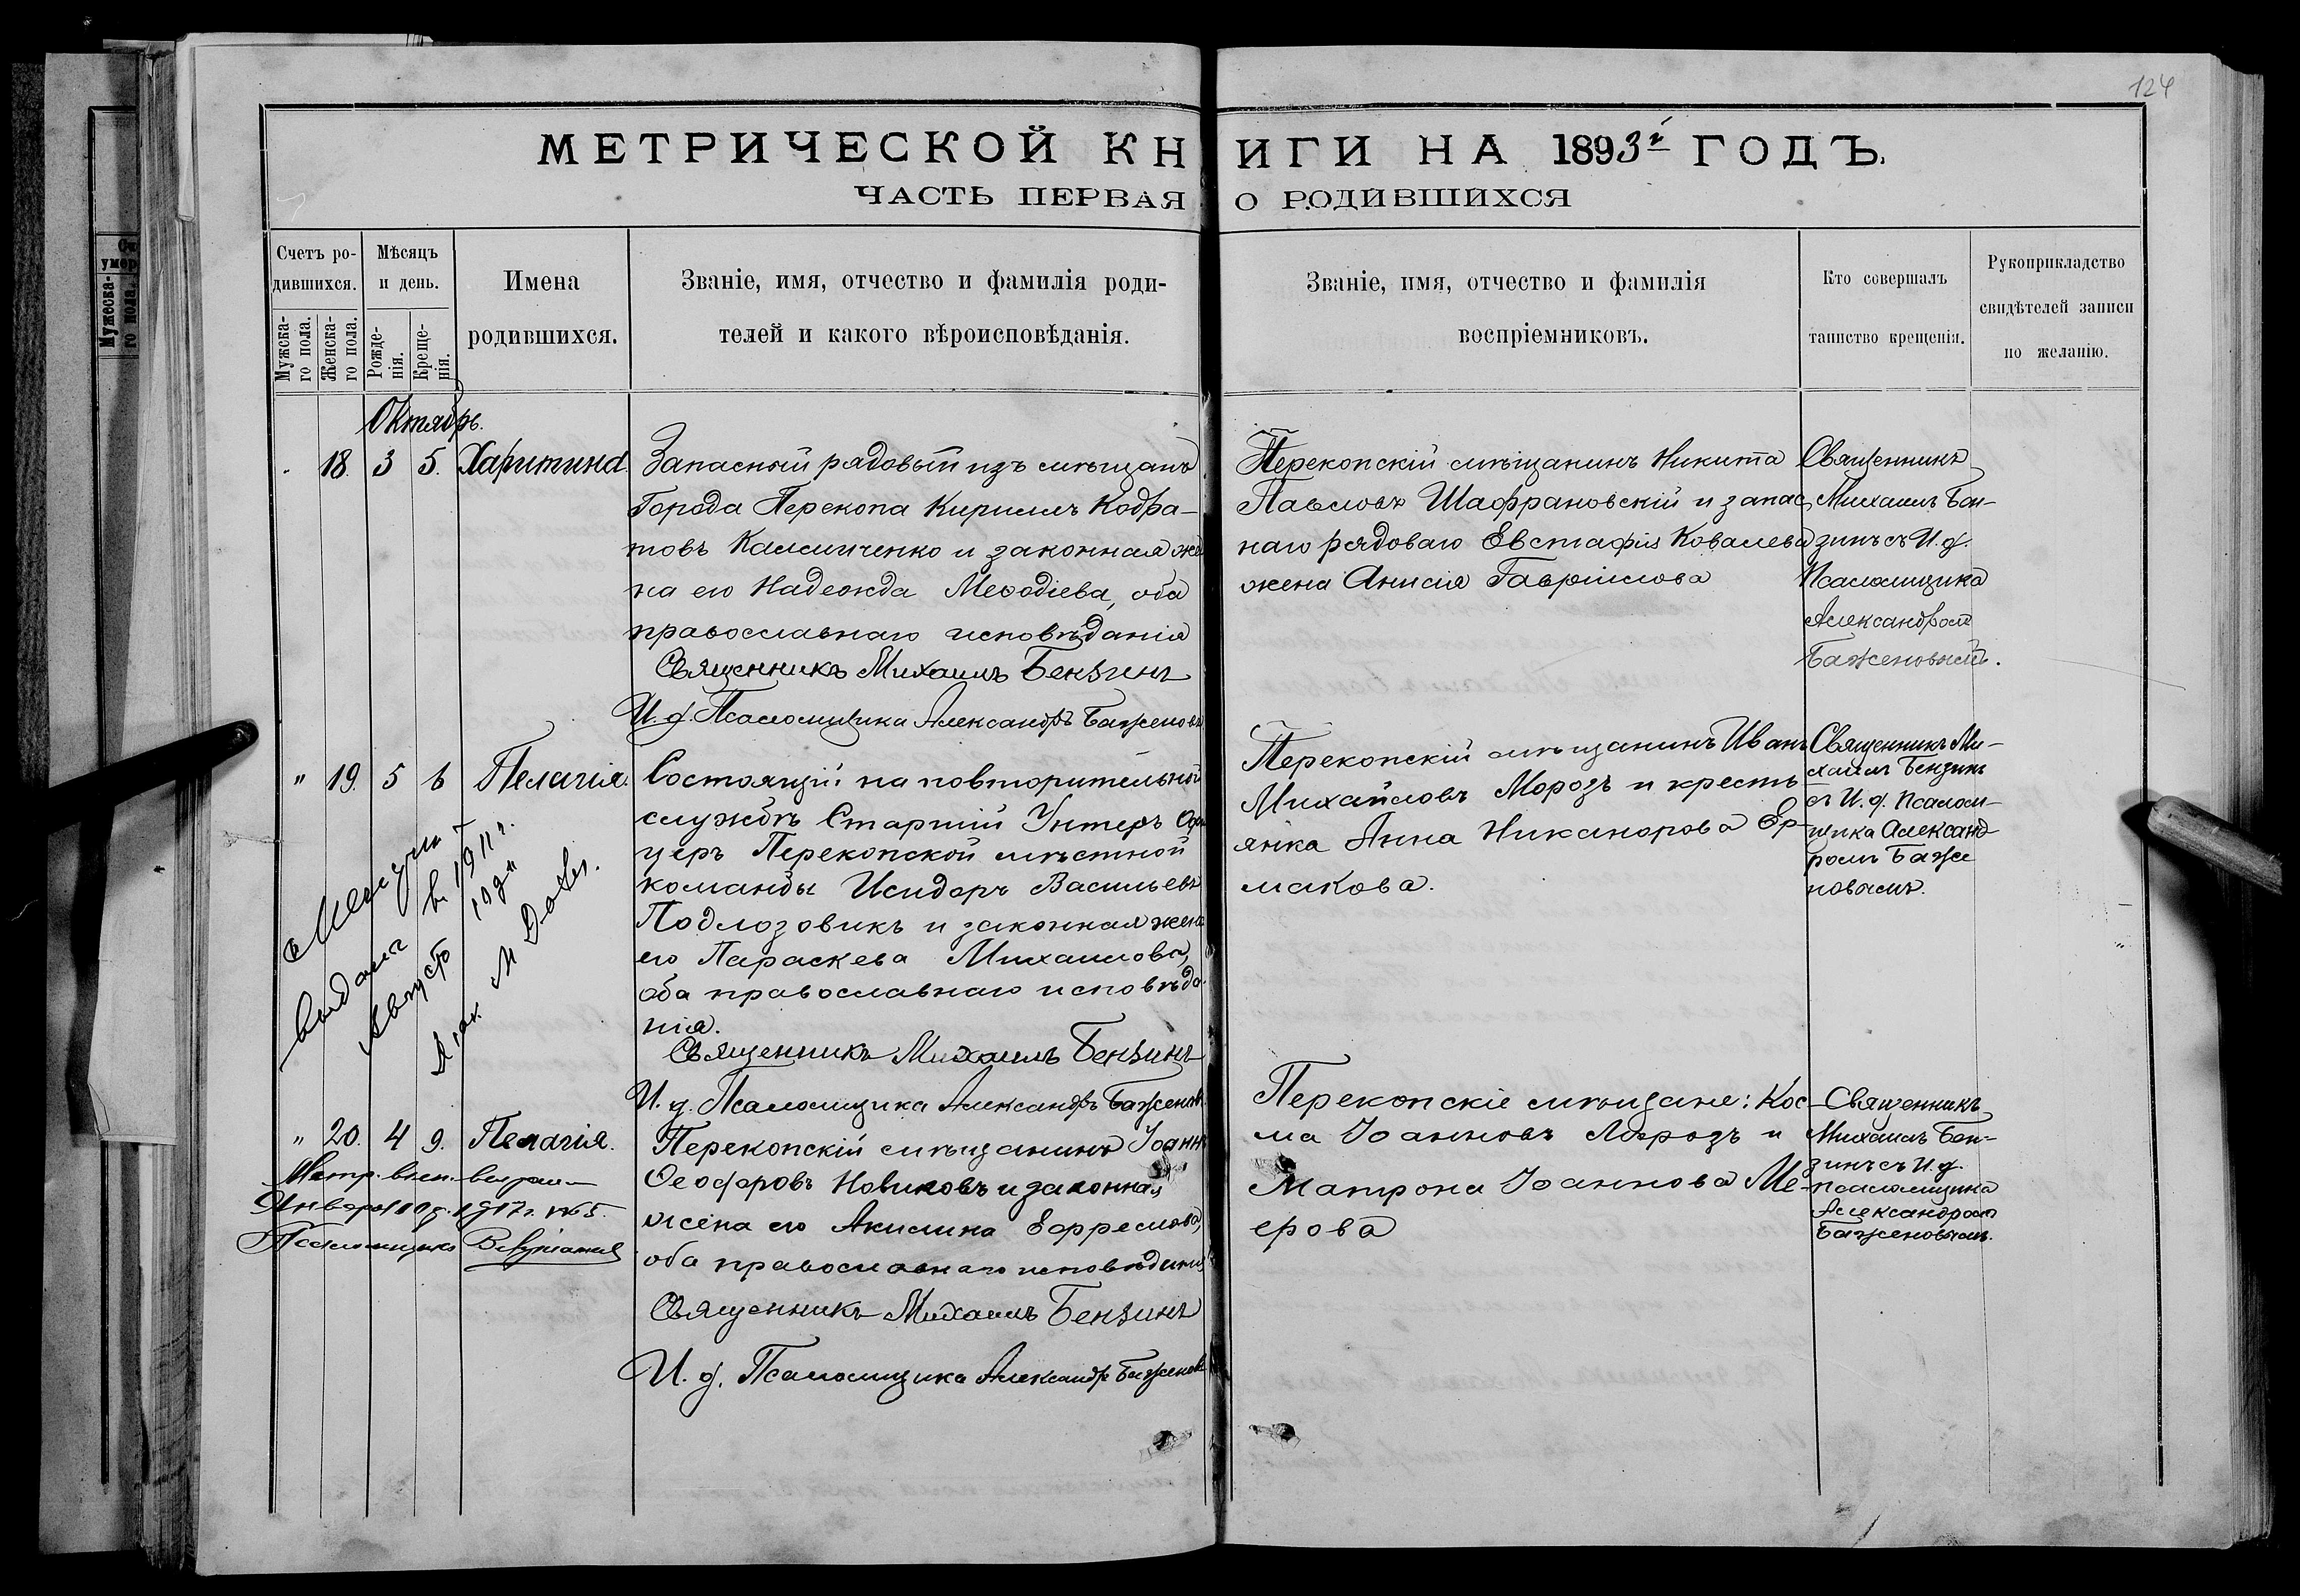 124
МЕТРИЧЕСКОЙ КНИГИ НА 1893й ГОДЪ.
ЧАСТЬ ПЕРВАЯ О РОДИВШИХСЯ
Счетъ ро-
дившихся.
Мужска-
го пола.
Женска-
го пола.
Мѣсяцъ
и день.
Рожде-
нія.
Креще-
нія.
Имена
родившихся.
Званіе, имя, отчество и фамилія роди-
телей и какого вѣроисповѣданія.
Званіе, имя, отчество и фамилія
воспріемниковъ.
Кто совершалъ
таинство крещенія.
Рукоприкладство
свидѣтелей записи
по желанію.
Октябрь.
18. 3 5. Харитина
Запасный рядовый изъ мѣщанъ
Города Перекопа Кириллъ Кодра-
товъ Калиниченко и законная же
на его Надежда Меѳодіева, оба
православнаго исповѣданія
Священникъ Михаилъ Бензинъ
И. д. Псаломщика Александръ Баженовъ
Перекопскій мѣщанинъ Никита
Павловъ Шафрановскій и запас
наго рядоваго Евстафія Ковалева
жена Анисія Гавріилова
Священникъ
Михаилъ Бен-
зинъ съ И. д.
Псаломщика
Александромъ
Баженовымъ.
" 19. 5 6 Пелагія.
Состоящій на повторительной
службѣ Старшій Унтеръ Офи
церъ Перекопской мѣстной
команды Исидоръ Васильевъ
Подлозовикъ и законная жена
его Параскева Михаилова,
оба православнаго исповѣда
нія.
Священникъ Михаилъ Бензинъ
И. д. Псаломщика Александръ Баженовъ
Перекопскій мѣщанинъ Иванъ
Михайловъ Морозъ и кресть
янка Анна Никанорова Ер-
макова.
Священникъ Ми-
хаилъ Бензинъ
съ И. д. Псалом-
щика Александ-
ромъ Баже
новымъ.
выдана
в 1911 г.
Августъ
" 20. 4 9. Пелагія.
Метр. вып. выдан
Января 10 д. 1917 г. №5.
Псаломщикъ
Перекопскій мѣщанинъ Іоаннъ
Ѳеодоровъ Новиковъ и законная
жена его Акилина Ефремова,
оба православнаго исповѣданія
Священникъ Михаилъ Бензинъ
И. д. Псаломщика Александръ Баженовъ
Перекопскіе мѣщане: Кос-
ма Іоанновъ Морозъ и
Матрона Іоаннова Ме-
ерова
Священникъ
Михаилъ Бен-
зинъ съ И. д.
псаломщика
Александромъ
Баженовымъ.